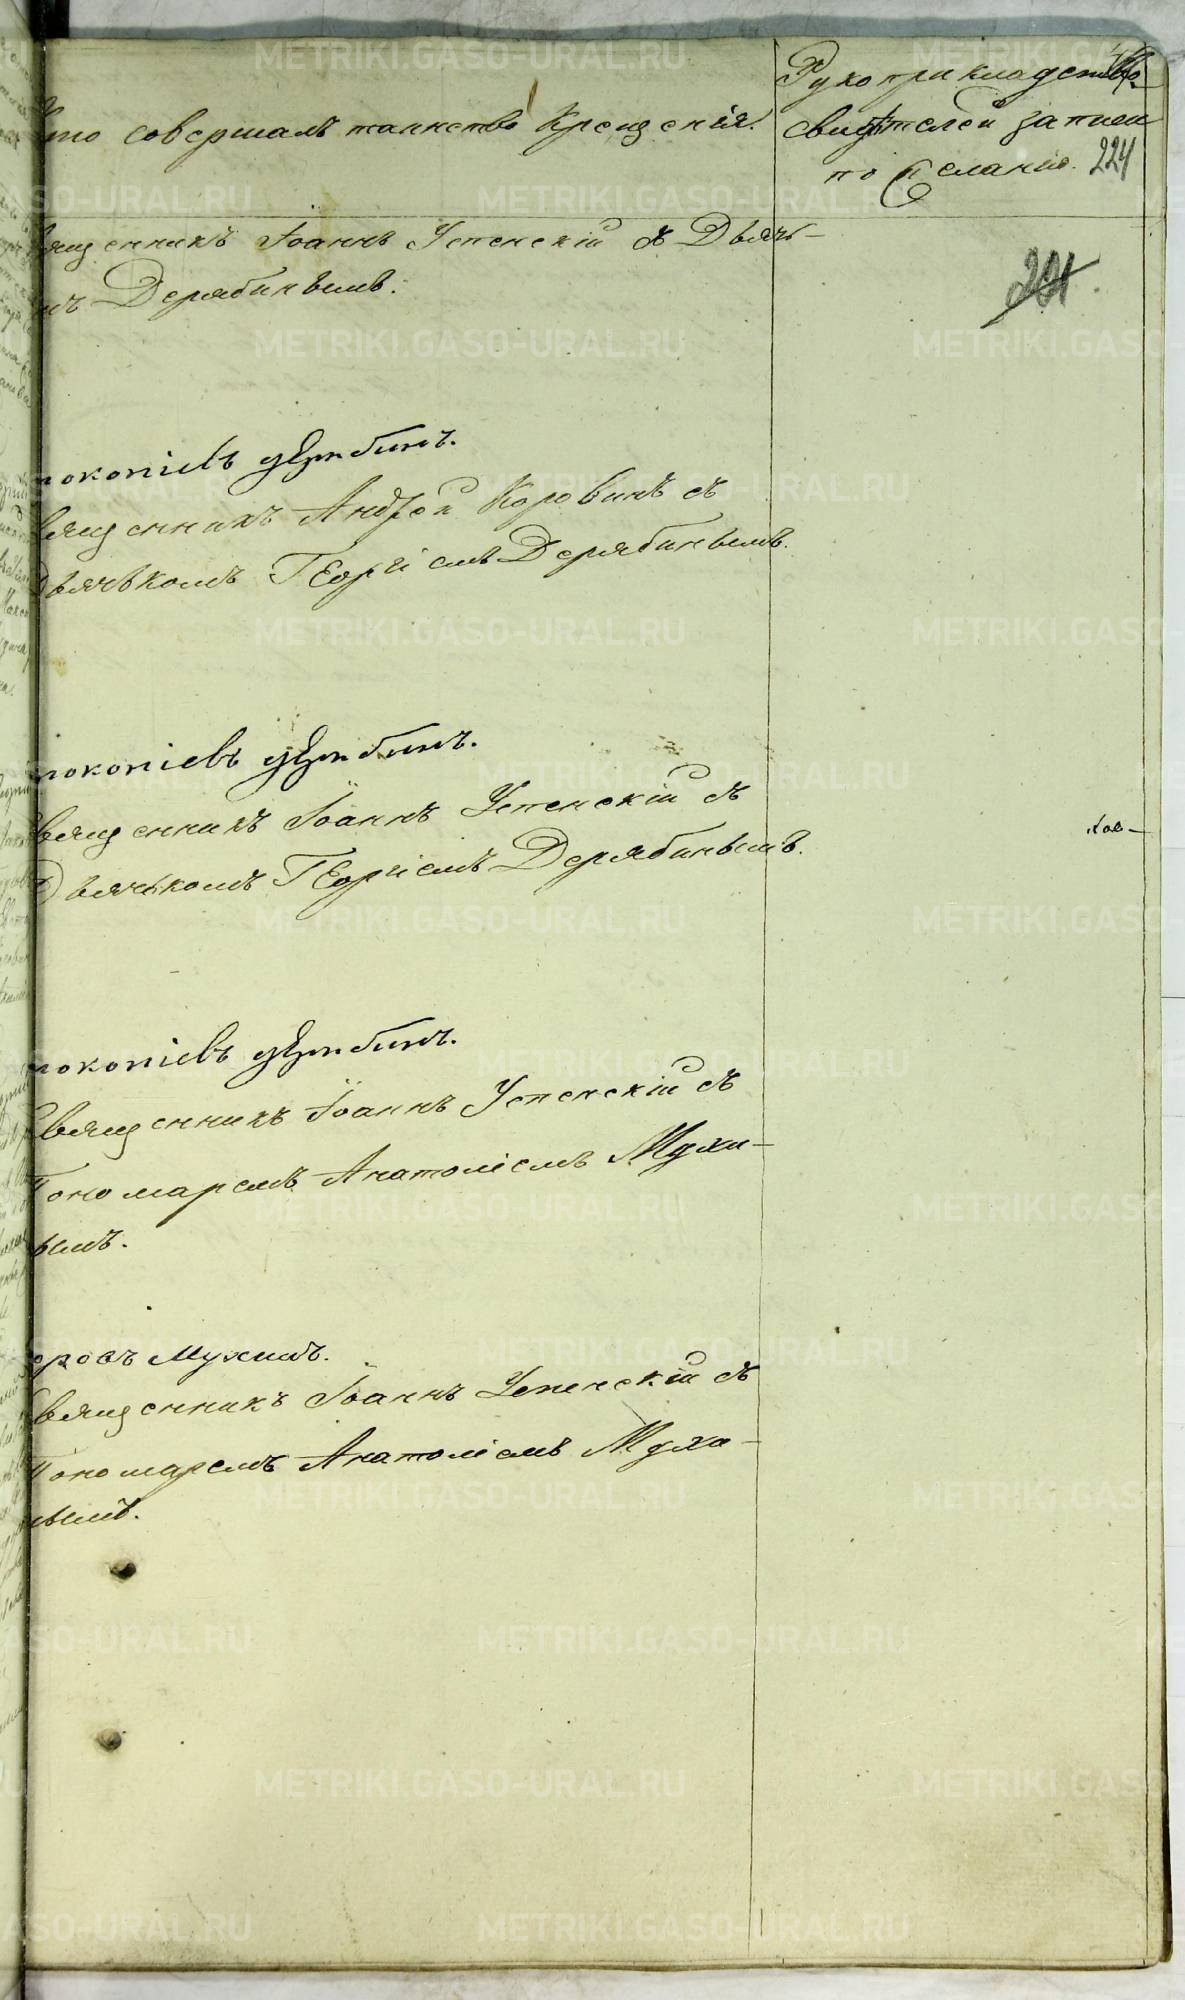 Кто совершалъ таинство Крещенія.
Рукоприкладство
свидѣтелей записи
по желанію.
224
201
вященникъ Іоаннъ Успенскій съ Дьячь-
мъ Дерябинымъ.
рокопіевъ дерябинъ.
вященникъ Андрей Коровинъ съ
Дьячькомъ Георгіемъ Дерябинымъ.
рокопіевъ дерябинъ.
Священникъ Іоаннъ Успенскій съ
Дьячькомъ Георгіемъ Дерябинымъ.
рокопіевъ дерябинъ.
Священникъ Іоаннъ Успенскій съ
Пономаремъ Анатоліемъ Мухи-
нымъ.
Мухинъ.
Священникъ Іоаннъ Успенскій съ
Пономаремъ Анатоліемъ Мухи-
нымъ.
METRIKI.GASO-URAL.RU